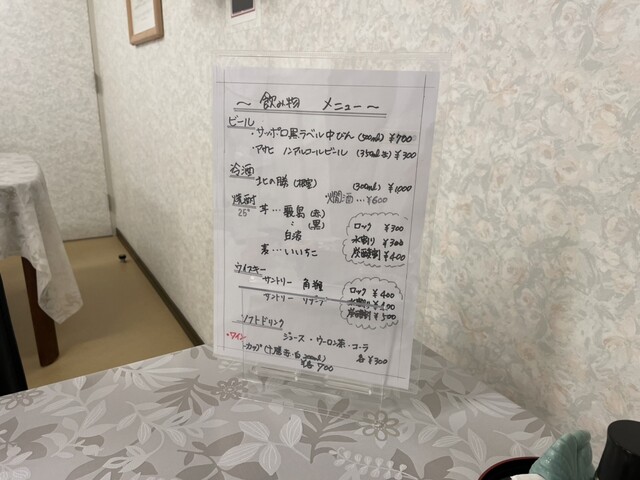 ～ 飲み物 メニュー ～
ビール
・サッポロ黒ラベル中びん (500ml) ¥700
・アサヒ ノンアルコールビール (350ml缶) ¥300
冷酒
北の勝 (根室) (300ml) ¥1000
燗酒…¥600
焼酎
25° 芋…霧島 (赤)
〃 (黒)
白
麦…いいちこ
ロック ¥300
水割り ¥300
炭酸割 ¥400
ウイスキー
サントリー 角瓶
サントリー
ロック ¥400
水割り ¥400
炭酸割 ¥500
ソフトドリンク
ジュース・ウーロン茶・コーラ
各 ¥300
・ワイン
・カップ (十勝 赤・白 200ml)
¥各700